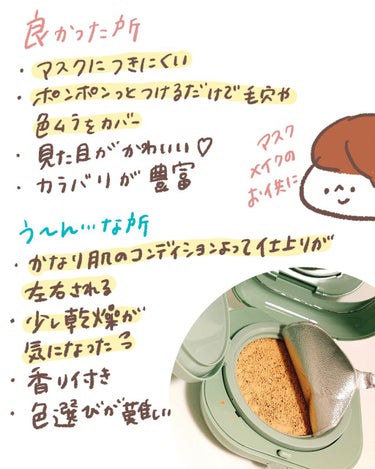 良かった所
・マスクにつきにくい
・ポンポンっとつけるだけで毛穴や
色ムラをカバー
・見た目がかわいい♡
・カラバリが豊富
マスク
メイクの
お供に
う〜ん…な所
・かなり肌のコンディションよって仕上りが
左右される
・少し乾燥が
気になった
・香り付き
・色選びが難しい